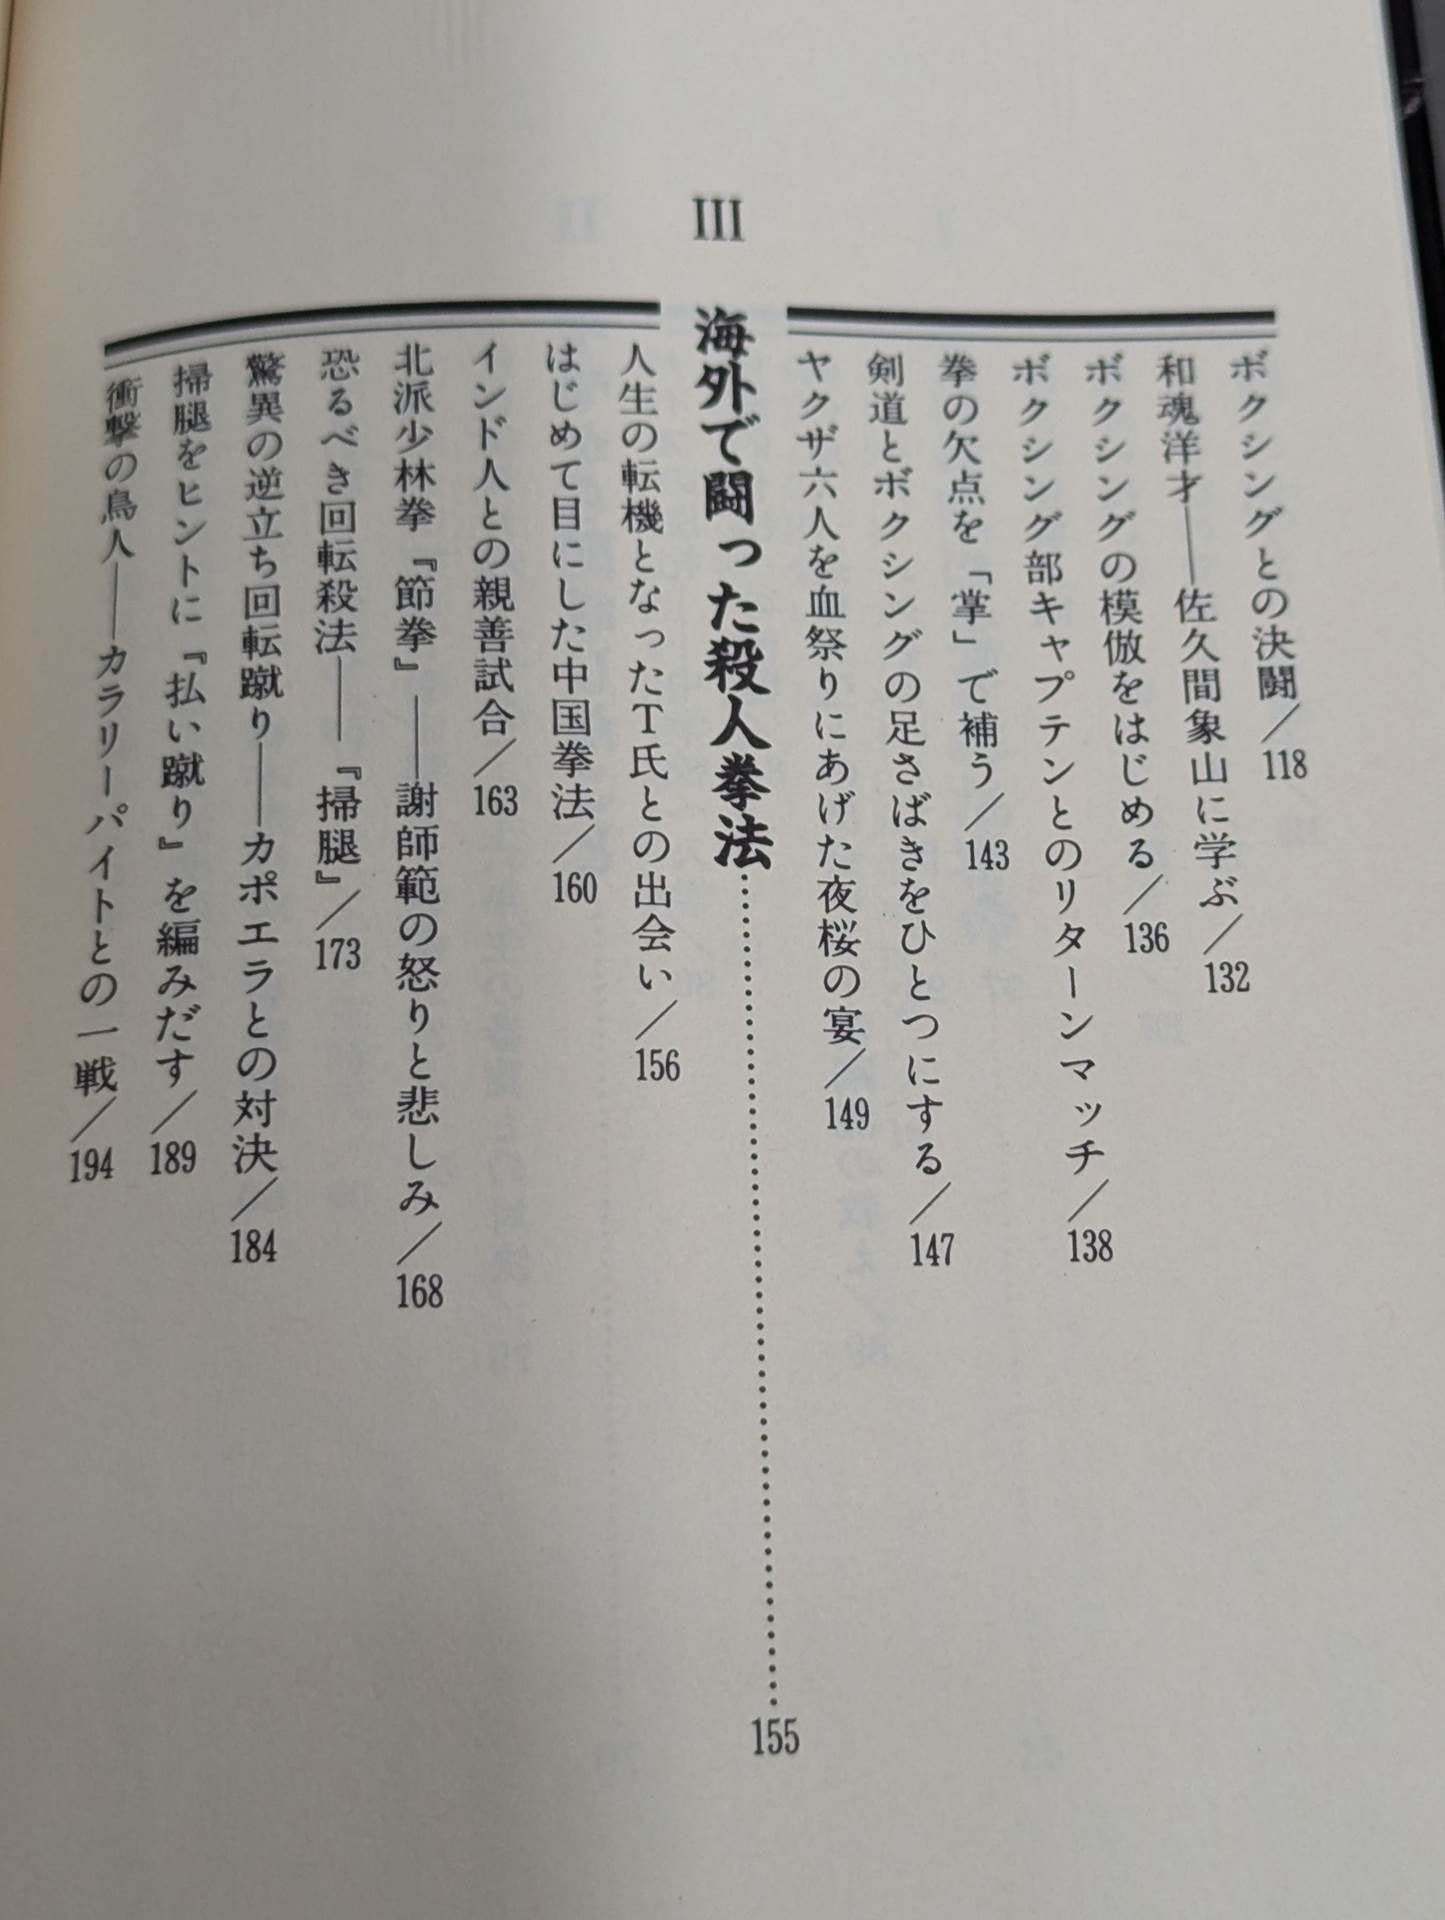 ボクシングとの決闘／118
和魂洋才――佐久間象山に学ぶ／132
ボクシングの模倣をはじめる／136
ボクシング部キャプテンとのリターンマッチ／138
拳の欠点を「掌」で補う／143
剣道とボクシングの足さばきをひとつにする／147
ヤクザ六人を血祭りにあげた夜桜の宴／149
III 海外で闘った殺人拳法…………155
人生の転機となったT氏との出会い／156
はじめて目にした中国拳法／160
インド人との親善試合／163
北派少林拳『節拳』――謝師範の怒りと悲しみ／168
恐るべき回転殺法――『掃腿』／173
驚異の逆立ち回転蹴り――カポエラとの対決／184
掃腿をヒントに『払い蹴り』を編みだす／189
衝撃の鳥人――カラリーパイトとの一戦／194